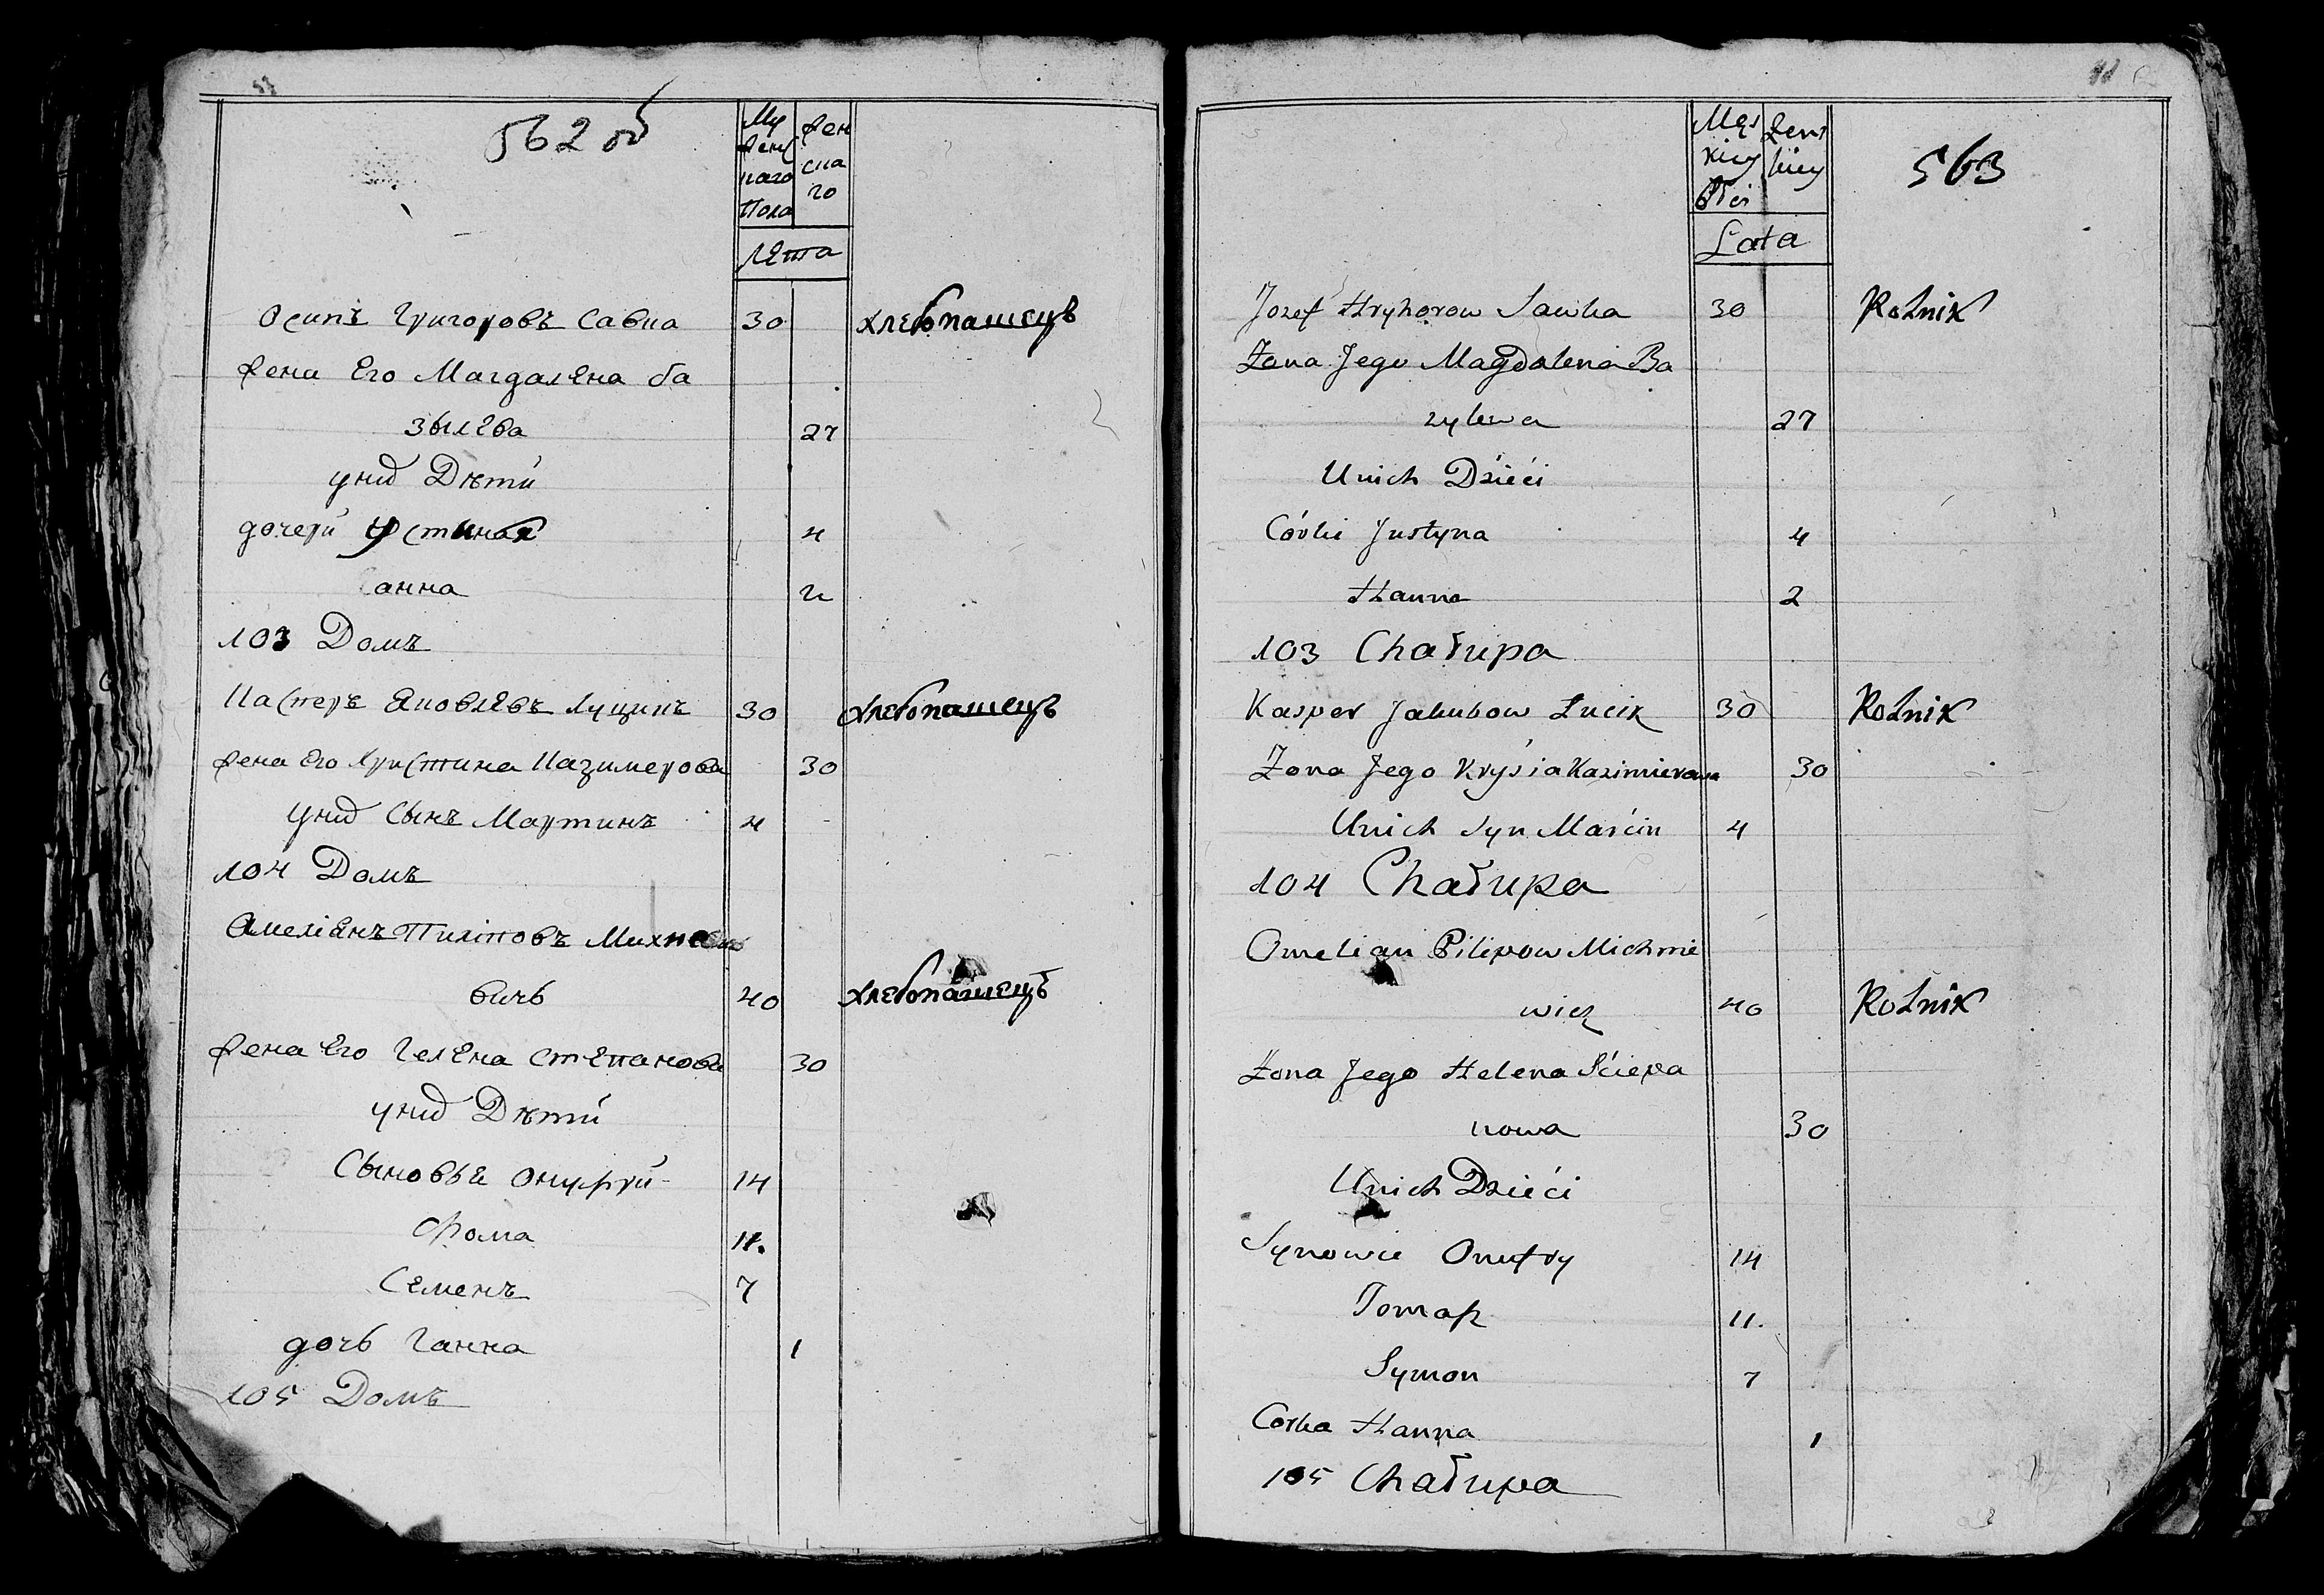 562 об
Му
жеск
наго
Пола
Жен
ска
го
Лета
Осипъ Григоровъ Савка 30 Хлебопашецъ
Жена Его Магдалена Ба
зылева 27
у них Дѣти
дочери Устина 4
Ганна 2
103 Домъ
Касперъ Яковлевъ Луцикъ 30 Хлебопашецъ
Жена Его Христина Казимерова 30
У них Сынъ Мартинъ 4
104 Домъ
Амеліянъ Пиліповъ Михне
вичъ 40 Хлебопашецъ
Жена Его Гелена Степанова 30
у них Дѣти
Сыновья Онуфрий 14
Фома 11.
Семенъ 7
дочь Ганна 1
105 Домъ
563
Męs
kiey
Płci
Żens
kiey
Lata
Jozef Hryhorow Sawka 30 Rolnik
Zona Jego Magdalena Ba
zylewa 27
Unich Dzieci
Córki Justyna 4
Hanna 2
103 Chałupa
Kasper Jakubow Łucik 30 Rolnik
Zona Jego Krysia Kazimierowa 30
Unich Syn Marcin 4
104 Chałupa
Omelian Pilipow Michnie
wicz 40 Rolnik
Zona Jego Helena Sciepa
nowa 30
Unich Dzieci
Synowie Onufry 14
Tomasz 11.
Symon 7
Corka Hanna 1
105 Chałupa